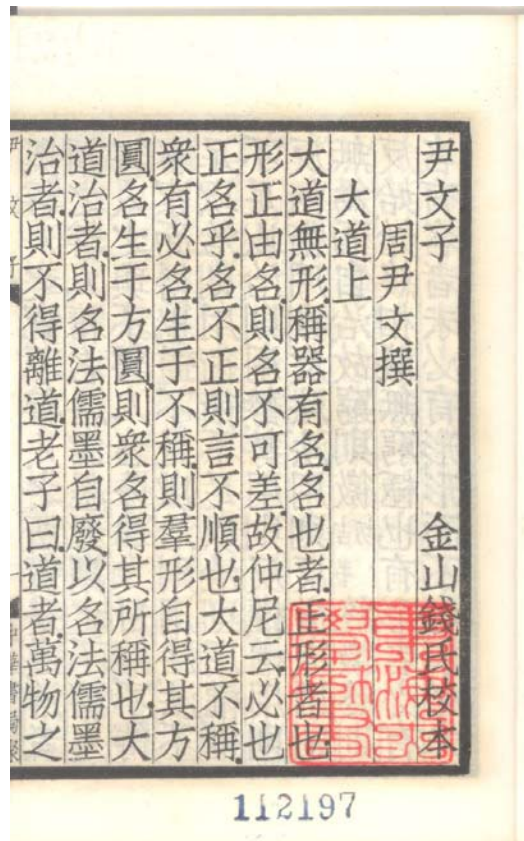 尹文子 金山錢氏校本
周尹文撰
大道上
大道無形稱器有名名也者正形者也
形正由名則名不可差故仲尼云必也
正名乎名不正則言不順也大道不稱
衆有必名生于不稱則羣形自得其方
圓名生于方圓則衆名得其所稱也大
道治者則名法儒墨自廢以名法儒墨
治者則不得離道老子曰道者萬物之
112197